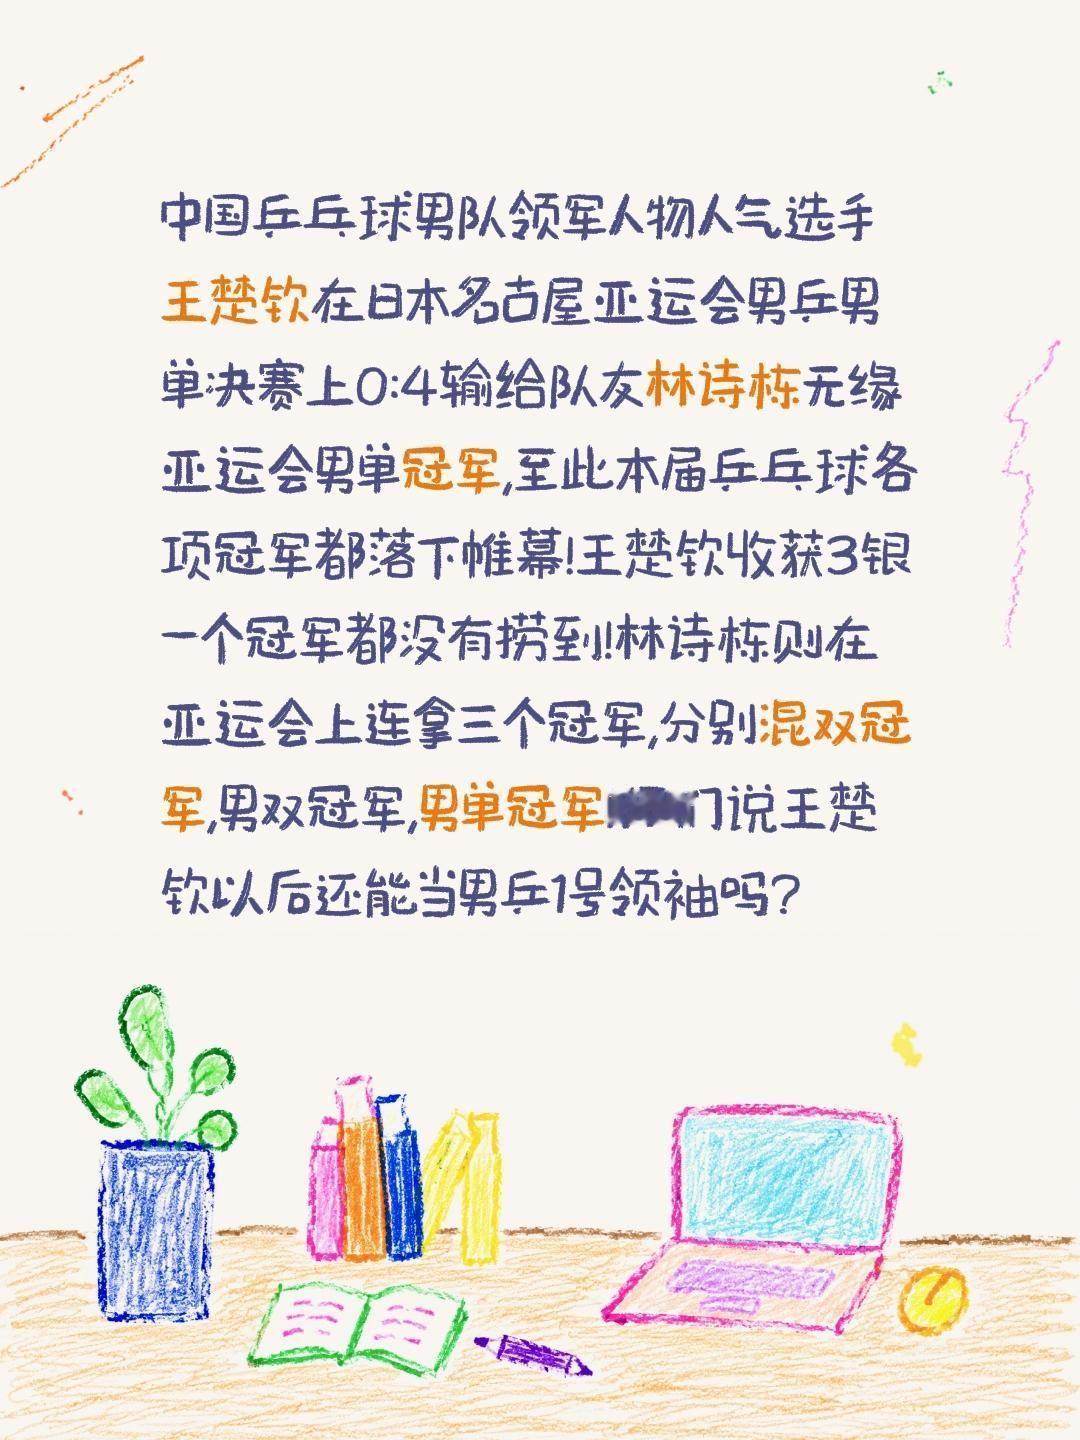 中国乒乓球男队领军人物人气选手
王楚钦在日本名古屋亚运会男乒男
单决赛上0:4输给队友林诗栋无缘
亚运会男单冠军,至此本届乒乓球各
项冠军都落下帷幕!王楚钦收获3银
一个冠军都没有捞到!林诗栋则在
亚运会上连拿三个冠军,分别混双冠
军,男双冠军,男单冠军们说王楚
钦以后还能当男乒1号领袖吗?